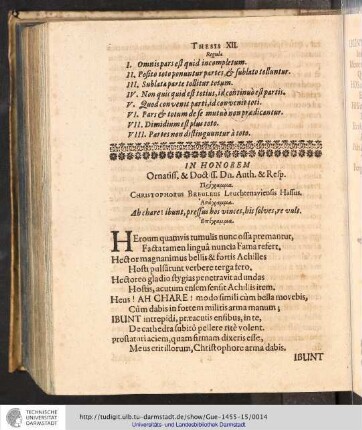 THESIS XII.
Regulæ
I. Omnis pars est quid incompletum.
II. Posito toto ponuntur partes, & sublato tolluntur.
III. Sublata parte tollitur totum.
IV. Non quicquid est totius, id continuò est partis.
V. Quod convenit parti, id convenit toti.
VI. Pars & totum de se mutuò non prædicantur.
VII. Dimidium est plus toto.
VIII. Partes non distinguuntur à toto.
IN HONOREM
Ornatiss. & Doct. ss. Dn. Auth. & Resp.
CHRISTOPHORUS Leuchtenaviensis Hassus.
Ah chare! ibunt, pressus hos vinces, his solves, re vuls.
HEroum quamvis tumulis nunc ossa premantur,
Facta tamen linguâ nuncia Fama refert,
Hector magnanimus bellis & fortis Achilles
Hosti pulsârunt verbere terga fero,
Hectoreo gladio stygias penetravit ad undas
Hostis, acutum ensem sensit Achillis item,
Heus! AH CHARE! modo simili cùm bella movebis,
Cùm dabis in fortem militis arma manum;
IBUNT intrepidi, præacutis ensibus, in te,
De cathedra subitò pellere ritè volent.
prostat vi aciem, quam firmam dixeris esse,
Meus erit illorum, Christophore arma dabis,
IBUNT
TECHNISCHE
UNIVERSITÄT
DARMSTADT
http://tudigit.ulb.tu-darmstadt.de/show/Gue-1455-15/0014
Universitäts- und Landesbibliothek Darmstadt